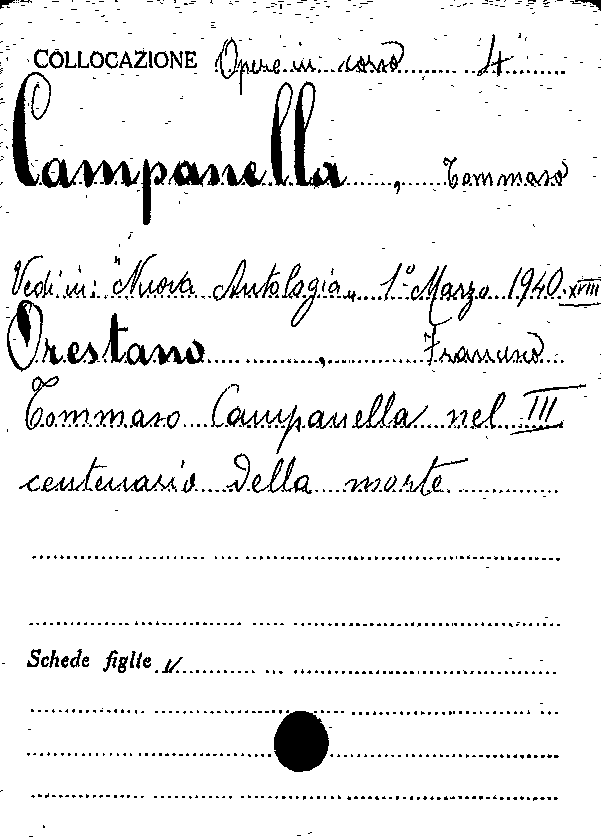 COLLOCAZIONE Opere in corso 4
Campanella, Tommaso
Vedi in: "Nuova Antologia„ 1° Marzo 1940.XVIII
Orestano, Francesco
Tommaso Campanella nel III
centenario della morte
Schede figlie